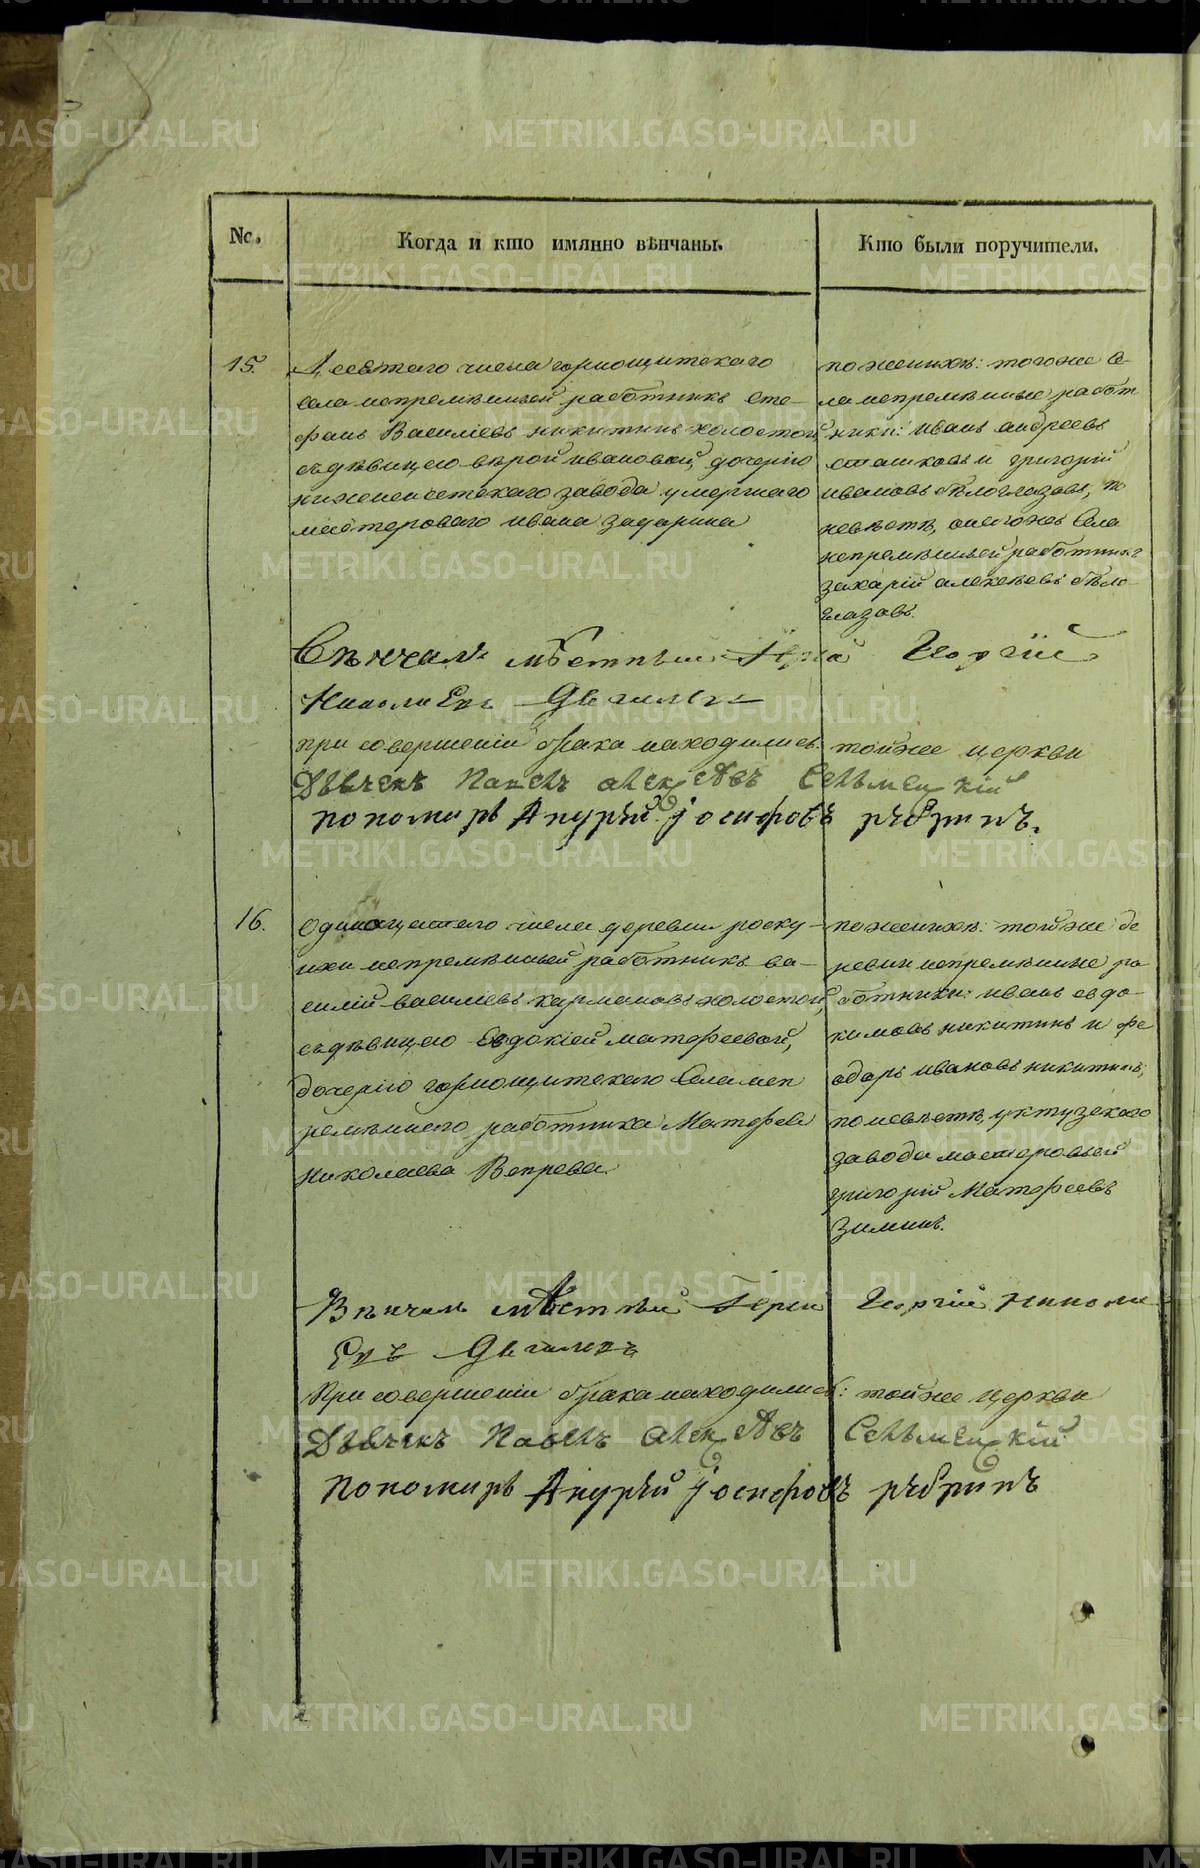 No.
Когда и кто имянно вѣнчаны.
Кто были поручители.
15.
Десятаго числа горнощитскаго
села непремѣнный работникъ Сте-
фанъ Василіевъ никитинъ холостой,
съ дѣвицею вѣрой ивановой, дочерію
нижнеисетскаго завода умершаго
мастероваго ивана
по женихѣ: тогоже Се-
ла непремѣнные работ
ники: иванъ андреевъ
и григорій
ивановъ бѣлоглазовъ, по
невѣстѣ, Села
непремѣнный работникъ
захарій алексѣевъ бѣло-
глазовъ.
Вѣнчалъ мѣстный Іерей Георгій
Николаевъ
при совершеніи брака находились: тойже церкви
Дьячекъ Павелъ алексѣевъ
пономарь Андрѣй іосифовъ
16.
Одинацатаго числа деревни
непремѣнный работникъ ва-
силій василіевъ кармановъ холостой,
съ дѣвицею Евдокіей матфеевой,
дочерію горнощитскаго Села неп
ремѣннаго работника Матфея
николаева Вепрева
по женихѣ: тойже де
ревни непремѣнные ра
ботники: иванъ евдо-
кимовъ никитинъ и фе
одоръ ивановъ никитинъ,
по невѣстѣ, уктузскаго
завода мастеровый
григорій Матфеевъ
Зиминъ.
Вѣнчалъ мѣстный Іерей Георгій Никола
евъ
При совершеніи брака находились: тойже церкви
Дьячекъ Павелъ алексѣевъ
пономарь Андрѣй іосифовъ
METRIKI.GASO-URAL.RU